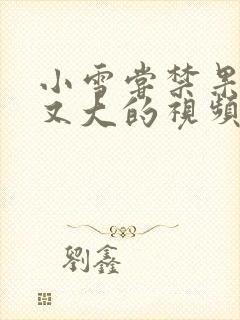 小雪嘗禁果
又大的視頻
劉鑫